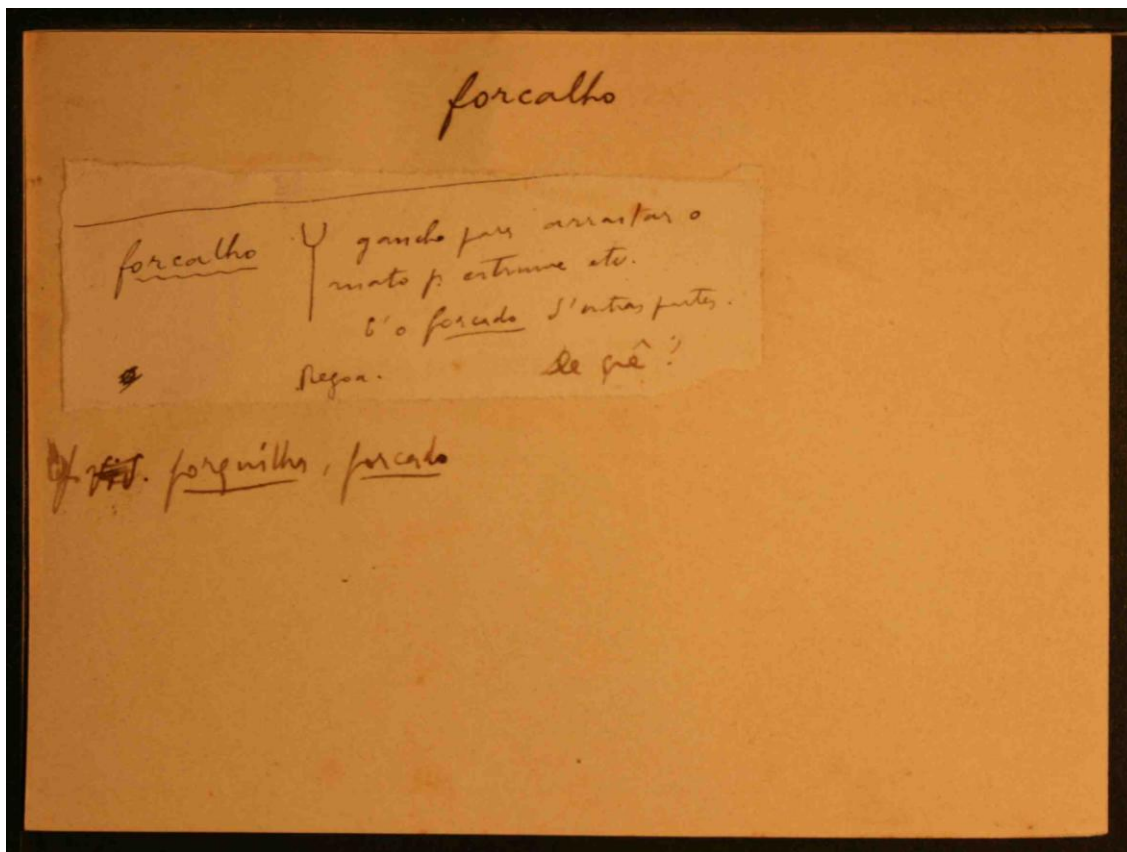 forcalho
forcalho gancho para arrastar o
mato p. estrume etc.
É o forcado d'outras partes.
Regoa. De quê?
Cf. forquilha, forcado